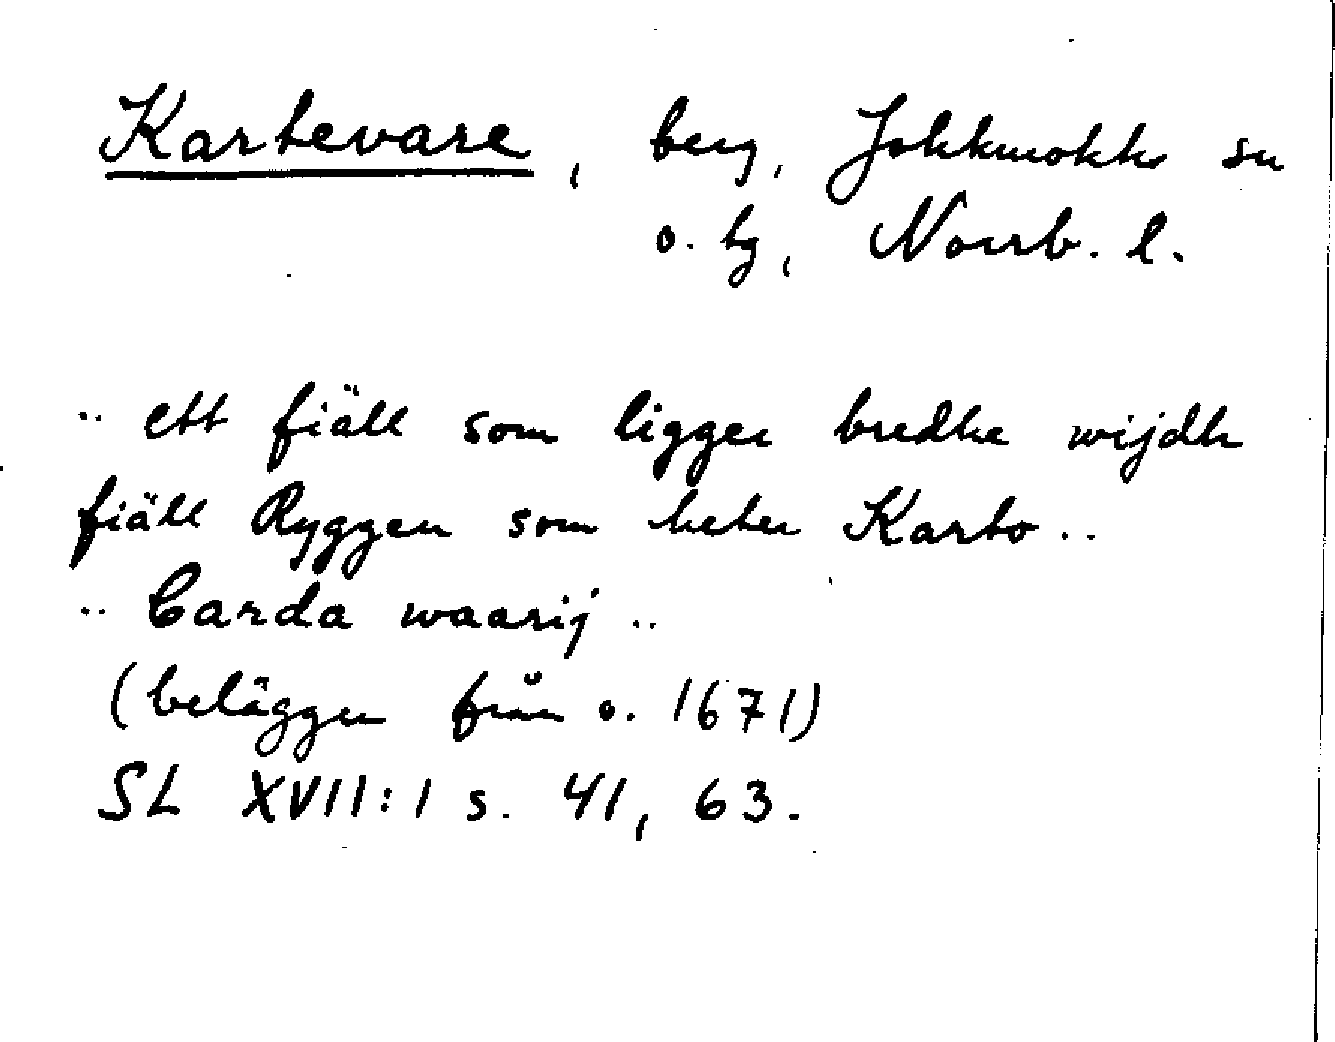 Kartevare, berg, Jokkmokks sn
o. hg, Norrb. l.
.. ett fiäll som ligger bredhe wijdh
fiäll Ryggen som heter Karto ..
.. Carda waarij ..
(beläggen från o. 1671)
SL XVII:1 s. 41, 63.